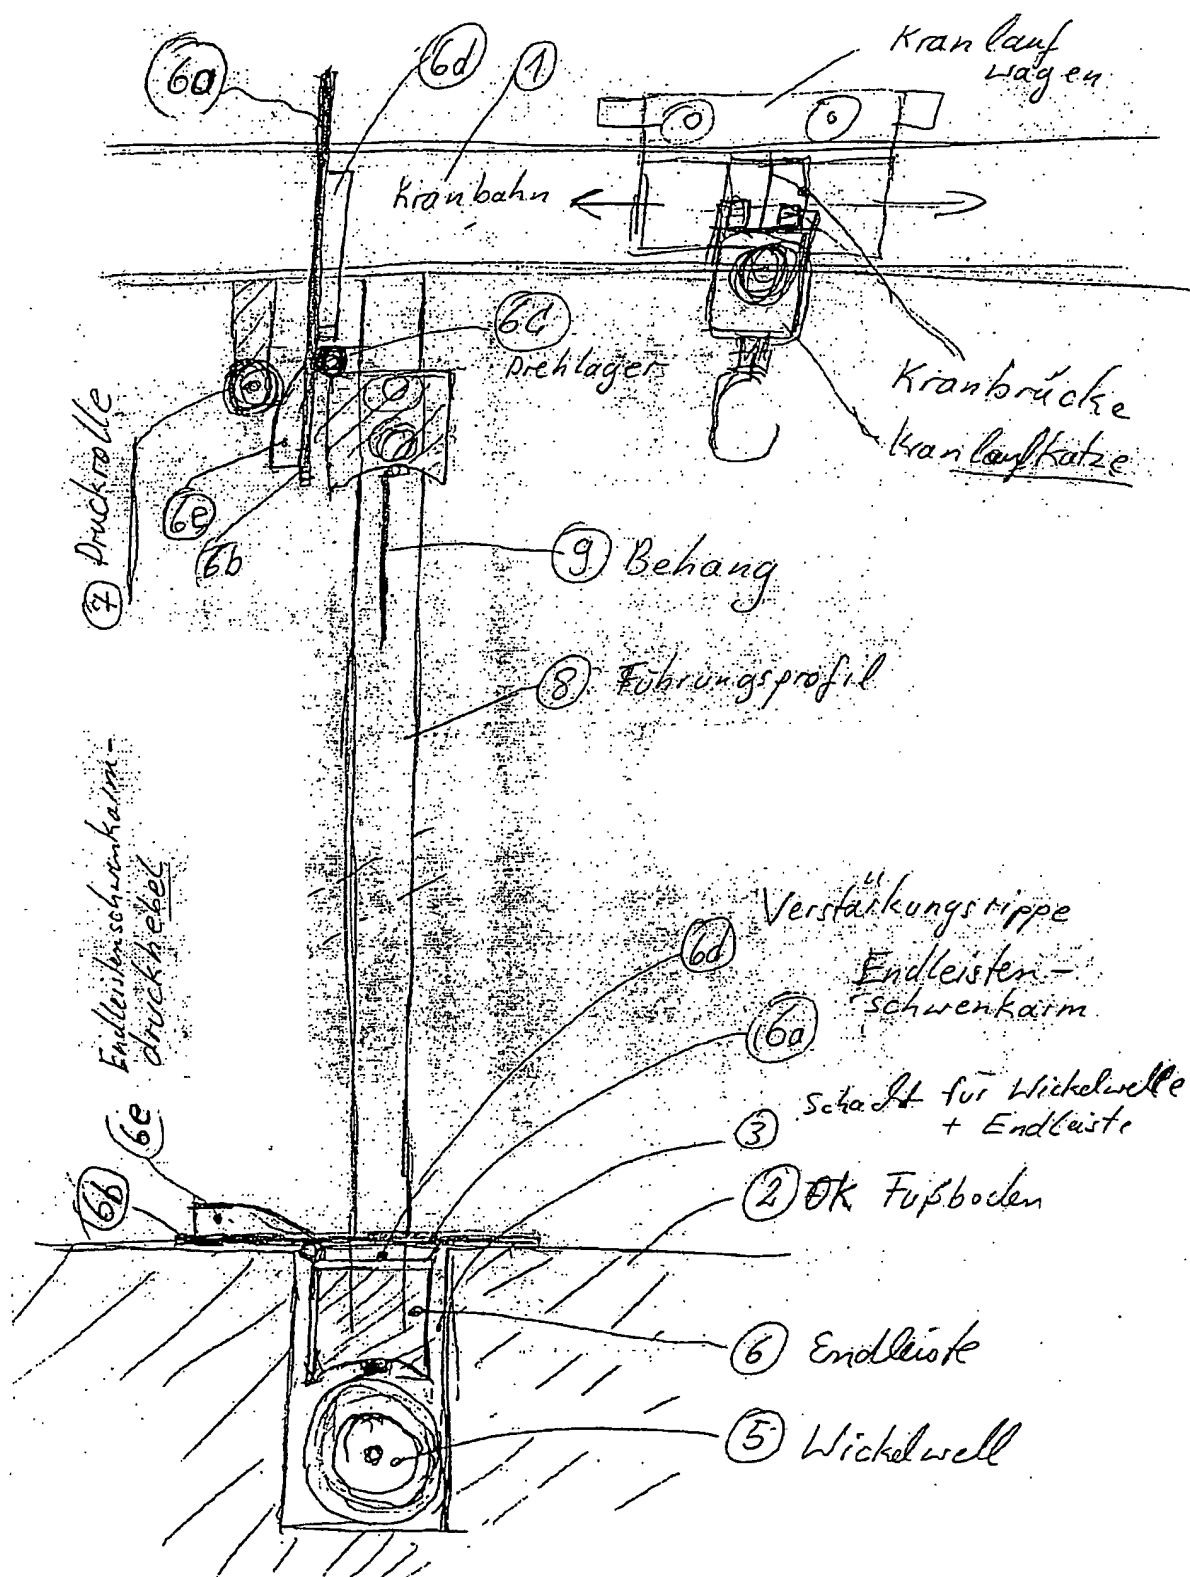 Kranlauf
wagen
6a
6d
1
Kranbahn
6c
Drehlager
Kranbrücke
Kranlaufkatze
7 Druckrolle
6e
6b
9 Behang
8 Führungsprofil
Endleistenschwenkarm-
druckhebel
6d Verstärkungsrippe
Endleisten-
schwenkarm
6a
Schacht für Wickelwelle
+ Endleiste
3
2 OK Fußboden
6e
6b
6 Endleiste
5 Wickelwell